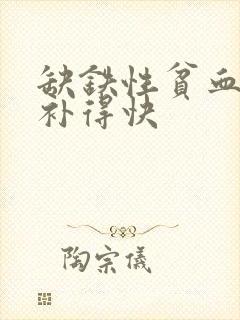 缺铁性贫血
补得快
陶宗儀